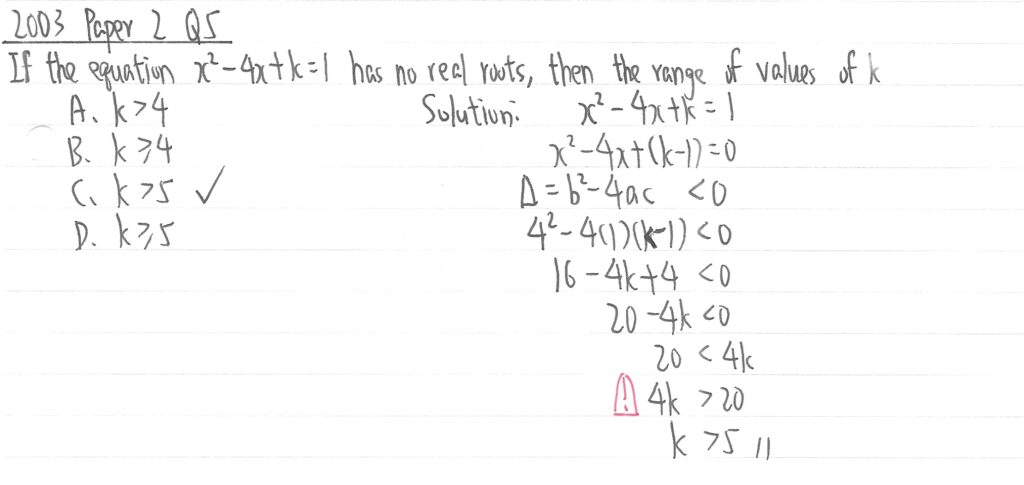 2003 Paper 2 Q5
If the equation x²-4x+k=1 has no real roots, then the range of values of k
A. k>4
B. k⩾4
C. k>5 ✓
D. k⩾5
Solution: x²-4x+k=1
x²-4x+(k-1)=0
Δ=b²-4ac <0
4²-4(1)(k-1)<0
16-4k+4 <0
20-4k<0
20<4k
! 4k >20
k >5 //